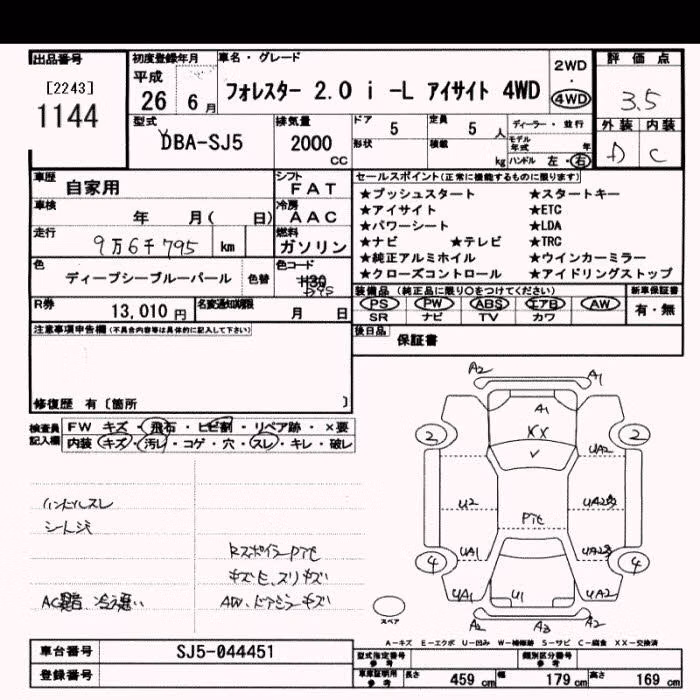 出品番号
[2243]
1144
初度登録年月
平成
26 6月
車名・グレード
フォレスター 2.0 i -L アイサイト 4WD
2WD
・
4WD
評価点
3.5
外装 内装
D C
型式
DBA-SJ5
排気量
2000
cc
ドア 5
定員 5 人
形状
積載 kg
ディーラー・並行
モデル年式 年
ハンドル 左・右
車歴
自家用
シフト
FAT
車検
年 月( 日)
冷房
AAC
走行
9万6千795 km
燃料
ガソリン
色
ディープシーブルーパール
色替
色コード
R券
13,010 円
名変通知期限
月 日
セールスポイント(正常に機能するものに限ります)
★プッシュスタート ★スタートキー
★アイサイト ★ETC
★パワーシート ★LDA
★ナビ ★テレビ ★TRC
★純正アルミホイル ★ウインカーミラー
★クローズコントロール ★アイドリングストップ
装備品 (純正品に限り○をつけてください)
新車保証書
PS PW ABS エアB AW
有・無
SR ナビ TV カワ
後日品
保証書
注意事項申告欄(不具合内容等は具体的に記入して下さい)
修復歴 有〔箇所 〕
検査員記入欄
FW キズ・飛石・ヒビ割・リペア跡・×要
内装 キズ・汚レ・コゲ・穴・スレ・キレ・破レ
ハンドルスレ
シート汚
AC異音、冷え悪い
RスポイラーPTヒ
キズE、スリキズ
AW、ドアミラーキズ
A2
A1
A1
XX
2
2
UA2
U2
UA2多
PTヒ
UA1
UA2多
4
4
UA1
U1
UA2
A2
A3
A2
スペア
A－キズ E－エクボ U－凹み W－補修跡 S－サビ C－腐食 XX－交換済
車台番号
SJ5-044451
登録番号
型式指定番号
参考
類別区分番号
参考
車庫証明用
参考
長さ 459 cm
幅 179 cm
高さ 169 cm